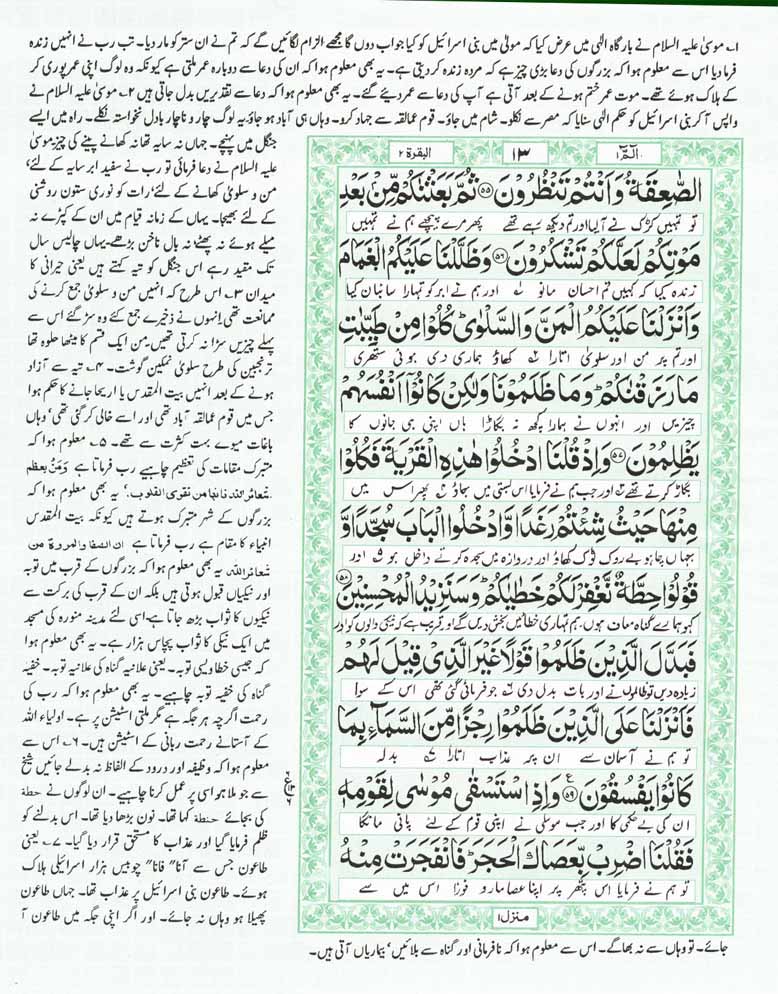 ۱۔ موسیٰ علیہ السلام نے بارگاہ الٰہی میں عرض کیا کہ مولیٰ میں بنی اسرائیل کو کیا جواب دوں گا مجھے الزام لگائیں گے کہ تم نے ان ستر کو مار دیا۔ تب رب نے انہیں زندہ
فرما دیا اس سے معلوم ہوا کہ بزرگوں کی دعا بڑی چیز ہے کہ مردہ زندہ کر دیتی ہے۔ یہ بھی معلوم ہوا کہ ان کی دعا سے دوبارہ عمر ملتی ہے کیونکہ وہ لوگ اپنی عمر پوری کر
کے ہلاک ہوئے تھے۔ موت عمر ختم ہونے کے بعد آتی ہے آپ کی دعا سے عمر دیئے گئے۔ یہ بھی معلوم ہوا کہ دعا سے تقدیریں بدل جاتی ہیں ۲۔ موسیٰ علیہ السلام نے
واپس آ کر بنی اسرائیل کو حکم الٰہی سنایا کہ مصر سے نکلو۔ شام میں جاؤ۔ قوم عمالقہ سے جہاد کرو۔ وہاں ہی آباد ہو جاؤ۔ یہ لوگ چار و ناچار بادل نخواستہ نکلے۔ راہ میں ایسے
جنگل میں پہنچے۔ جہاں نہ سایہ تھا نہ کھانے پینے کی چیز۔ موسیٰ
علیہ السلام نے دعا فرمائی تو رب نے سفید ابر سایہ کے لئے،
من و سلویٰ کھانے کے لئے، رات کو نوری ستون روشنی
کے لئے بھیجا۔ یہاں کے زمانہ قیام میں ان کے کپڑے نہ
میلے ہوئے نہ پھٹے نہ بال ناخن بڑھے۔ یہاں چالیس سال
تک مقید رہے اس جنگل کو تیہ کہتے ہیں یعنی حیرانی کا
میدان ۳۔ اس طرح کہ انہیں من و سلویٰ جمع کرنے کی
ممانعت تھی انہوں نے ذخیرے جمع کئے وہ سڑ گئے اس سے
پہلے چیزیں سڑا نہ کرتی تھیں۔ من ایک قسم کا میٹھا حلوہ تھا
ترنجبین کی طرح سلویٰ نمکین گوشت۔ ۴۔ تیہ سے آزاد
ہونے کے بعد انہیں بیت المقدس یا اریحا جانے کا حکم ہوا
جس میں قوم عمالقہ آباد تھی اور اسے خالی کر گئی تھی، وہاں
باغات میوے بہت کثرت سے تھے۔ ۵۔ معلوم ہوا کہ
متبرک مقامات کی تعظیم چاہیے رب فرماتا ہے وَمَنْ يُعظم
شعائر اللہ فانہا من تقوی القلوب۔ یہ بھی معلوم ہوا کہ
بزرگوں کے شہر متبرک ہوتے ہیں کیونکہ بیت المقدس
انبیاء کا مقام ہے رب فرماتا ہے ان الصفا والمروة من
شعائر اللہ یہ بھی معلوم ہوا کہ بزرگوں کے قرب میں توبہ
اور نیکیاں قبول ہوتی ہیں بلکہ ان کے قرب کی برکت سے
نیکیوں کا ثواب بڑھ جاتا ہے۔ اسی لئے مدینہ منورہ کی مسجد
میں ایک نیکی کا ثواب پچاس ہزار ہے۔ یہ بھی معلوم ہوا
کہ جیسی خطا ویسی توبہ۔ یعنی علانیہ گناہ کی علانیہ توبہ۔ خفیہ
گناہ کی خفیہ توبہ چاہیے۔ یہ بھی معلوم ہوا کہ رب کی
رحمت اگرچہ ہر جگہ ہے مگر ملتی اسٹیشن پر ہے۔ اولیاء اللہ
کے آستانے رحمت ربانی کے اسٹیشن ہیں۔ ۶۔ اس سے
معلوم ہوا کہ وظیفہ اور درود کے الفاظ نہ بدلے جائیں شیخ
سے جو ملا ہو اسی پر عمل کرنا چاہیے۔ ان لوگوں نے حطة
کی بجائے حنطة کہا تھا۔ نون بڑھا دیا تھا۔ اس بدلنے کو
ظلم فرمایا گیا اور عذاب کا مستحق قرار دیا گیا۔ ۷۔ یعنی
طاعون جس سے آناً فاناً چوبیس ہزار اسرائیلی ہلاک
ہوئے۔ طاعون بنی اسرائیل پر عذاب تھا۔ جہاں طاعون
پھیلا ہو وہاں نہ جائے۔ اور اگر اپنی جگہ میں طاعون آ
الٓمّٓ ۱
۱۳
البقرة ۲
الصّٰعِقَةُ وَاَنْتُمْ تَنْظُرُوْنَ ۝۵۵ ثُمَّ بَعَثْنٰكُمْ مِّنْۢ بَعْدِ
تو تمہیں کڑک نے آلیا اور تم دیکھ رہے تھے پھر مرے پیچھے ہم نے تمہیں
مَوْتِكُمْ لَعَلَّكُمْ تَشْكُرُوْنَ ۝۵۶ وَظَلَّلْنَا عَلَيْكُمُ الْغَمَامَ
زندہ کیا کہ کہیں تم احسان مانو اور ہم نے ابر کو تمہارا سائبان کیا
وَاَنْزَلْنَا عَلَيْكُمُ الْمَنَّ وَالسَّلْوٰى ؕ كُلُوْا مِنْ طَيِّبٰتِ
اور تم پر من اور سلویٰ اتارا کھاؤ ہماری دی ہوئی ستھری
مَا رَزَقْنٰكُمْ ؕ وَمَا ظَلَمُوْنَا وَلٰكِنْ كَانُوْۤا اَنْفُسَهُمْ
چیزیں اور انہوں نے ہمارا کچھ نہ بگاڑا ہاں اپنی ہی جانوں کا
يَظْلِمُوْنَ ۝۵۷ وَاِذْ قُلْنَا ادْخُلُوْا هٰذِهِ الْقَرْيَةَ فَكُلُوْا
بگاڑ کرتے تھے اور جب ہم نے فرمایا اس بستی میں جاؤ پھر اس میں
مِنْهَا حَيْثُ شِئْتُمْ رَغَدًا وَّادْخُلُوا الْبَابَ سُجَّدًا وَّ
جہاں چاہو بے روک ٹوک کھاؤ اور دروازہ میں سجدہ کرتے داخل ہو اور
قُوْلُوْا حِطَّةٌ نَّغْفِرْ لَكُمْ خَطٰيٰكُمْ ؕ وَسَنَزِيْدُ الْمُحْسِنِيْنَ ۝۵۸
کہو ہمارے گناہ معاف ہوں ہم تمہاری خطائیں بخش دیں گے اور قریب ہے کہ نیکی والوں کو اور
فَبَدَّلَ الَّذِيْنَ ظَلَمُوْا قَوْلًا غَيْرَ الَّذِيْ قِيْلَ لَهُمْ
زیادہ دیں تو ظالموں نے اور بات بدل دی جو فرمائی گئی تھی اس کے سوا
فَاَنْزَلْنَا عَلَى الَّذِيْنَ ظَلَمُوْا رِجْزًا مِّنَ السَّمَآءِ بِمَا
تو ہم نے آسمان سے ان پر عذاب اتارا بدلہ
كَانُوْا يَفْسُقُوْنَ ۝۵۹ وَاِذِ اسْتَسْقٰى مُوْسٰى لِقَوْمِهٖ
ان کی بے حکمی کا اور جب موسیٰ نے اپنی قوم کے لئے پانی مانگا
فَقُلْنَا اضْرِبْ بِّعَصَاكَ الْحَجَرَ ؕ فَانْفَجَرَتْ مِنْهُ
تو ہم نے فرمایا اس پتھر پر اپنا عصا مارو فوراً اس میں سے
منزل ۱
جائے۔ تو وہاں سے نہ بھاگے۔ اس سے معلوم ہوا کہ نافرمانی اور گناہ سے بلائیں، بیماریاں آتی ہیں۔